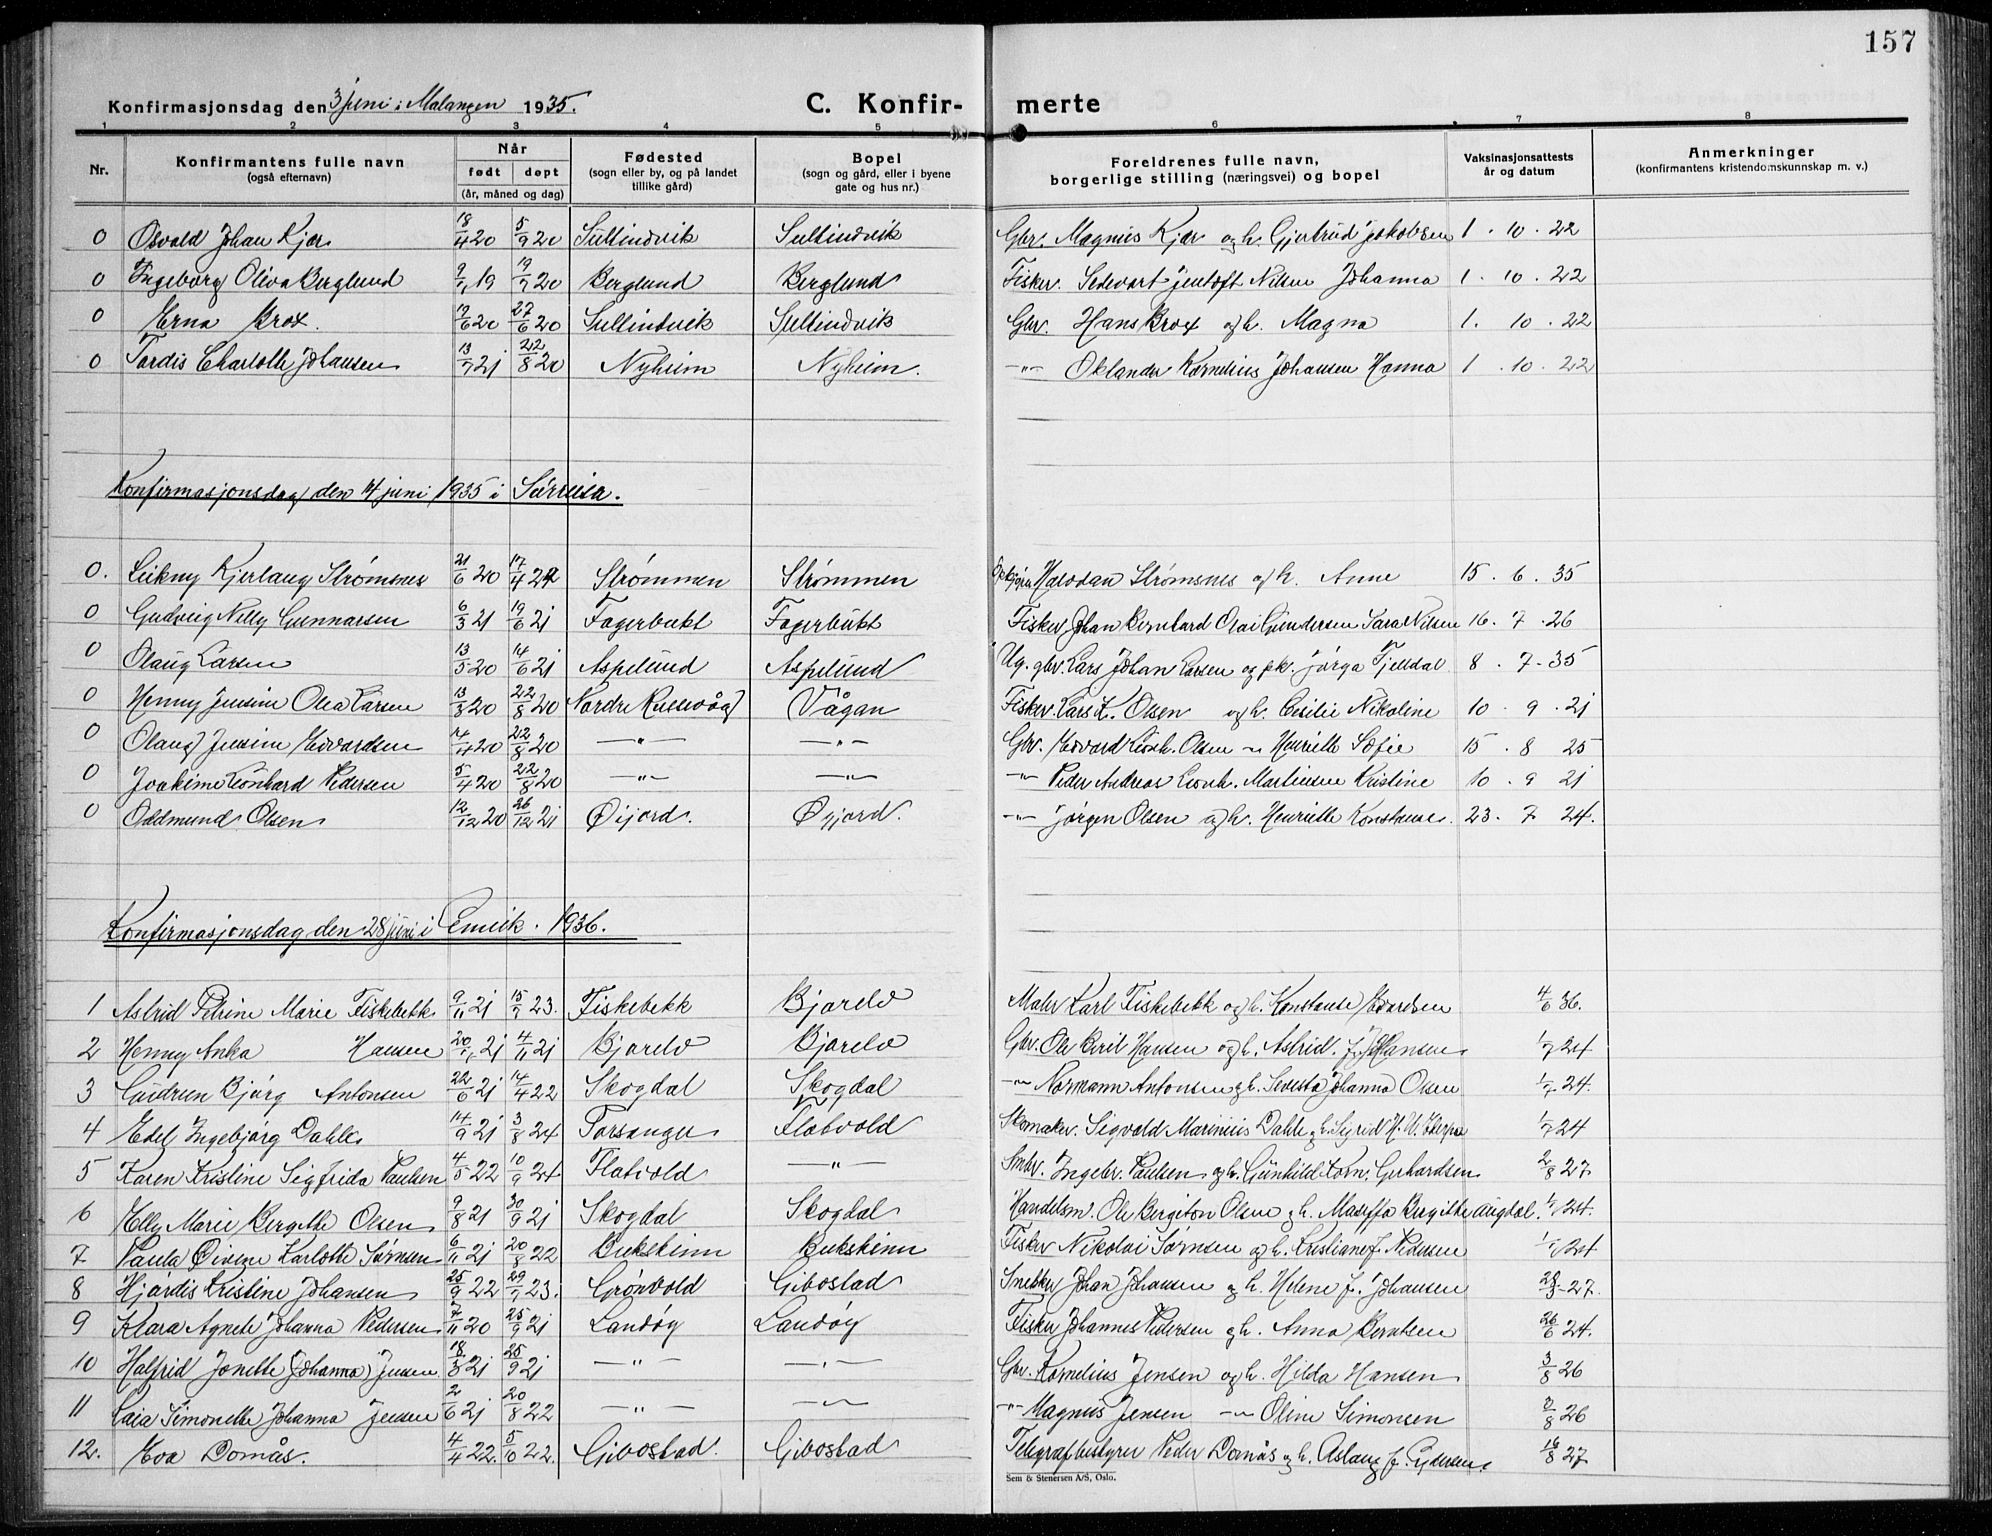 157
Konfirmasjonsdag den 3 juni i Malangen 1935. C. Konfir- merte
1 2 3 4 5 6 7 8
Nr. Konfirmantens fulle navn (også efternavn) Når født døpt (år, måned og dag) Fødested (sogn eller by, og på landet tillike gård) Bopel (sogn og gård, eller i byene gate og hus nr.) Foreldrenes fulle navn, borgerlige stilling (næringsvei) og bopel Vaksinasjonsattests år og datum Anmerkninger (konfirmantens kristendomskunnskap m. v.)
0 Osvald Johan Kjær 18/4 20 5/9 20 Sultindvik Sultindvik Gbr. Magnus Kjær og h. Gjertrud Jakobsen 1 . 10 . 22
0 Ingeborg Oliva Berglund 19 19/7 20 Berglund Berglund Fisker. Sedevart Jentoft Nilsen Johanna 1 . 10 . 22
0 Erna Brox. 20 27/6 20 Sultindvik Sultindvik Gbr. Hans Brox og h. Magna 1. 10 . 22
0 Tordis Charlotte Johansen 13/7 21 22/8 20 Nyheim Nyheim. -"- Oklander Kornelius Johansen Hanna 1 . 10 . 22
Konfirmasjonsdag den 14 juni 1935 i Sørreisa.
0. Leikny Kjerlaug Strømsnes 21/6 20 17/4 Strømmen Strømmen Halvdan Strømsnes og h. Anne 15 . 6 . 35
0 Gudveig Nelly Gunnarsen 6/3 21 19/6 21 Fagerbukt Fagerbukt Fisker Johan Bernhard Olai Gundersen Sara Nilsen 16 . 7 . 26
0 Olaug Larsen 13/5 20 14/6 21 Aspelund Aspelund Ug. gbr. Lars Johan Larsen og pk. Jørga Fjelldal 8 . 7 - 35
0 Henny Jensine Olea Larsen 13/3 20 22/8 20 Nordre Vågan Fisker. Lars L. Olsen og h. Cecilie Nikoline 10 . 9 . 21
0 Olaug Jensine Edvardsen 14/4 20 22/8 20 -"- -"- Gbr. Edvard Leonh. Olsen -"- Henriette Sofie 15 . 8 25
0 Joakime Leonhard Pedersen 5/4 20 22/8 20 -"- -"- -"- Peder Andreas Leonh. Martinsen Kristine 10 . 9 21
0 Oddmund Olsen 12/12 20 26/12 21 Øijord. Øijord. -"- Jørgen Olsen og h. Henriette Konstanse. 23 . 7 24.
Konfirmasjonsdag den 28 juni i 1936.
1 Astrid Petrine Marie Fiskebekk 9/11 21 15/7 23. Fiskebekk Bjorelv Maler Karl Fiskebekk og h. Konstanse Edvardsen 4/6 36.
2 Henny Anka Hansen 21 4/11 21 Bjorelv Bjorelv Gbr. Ole Hansen og h. Astrid Hansen 1/7 24
3 Gudrun Bjørg Antonsen 22/6 21 14/4 22 Skogdal Skogdal -"- Normann Antonsen og h. Johanna Olsen 1/7 24.
4 Edel Ingebjørg Dahl 14/9 21 3/8 24 Torsanger Flatvold Skomaker. Sigvald Marinius Dahl og h. Sigrid 1/7 24
5 Karen Kristine Sigfrida Paulsen 4/5 22 10/9 24 Flatvold -"- Smbr. Ingebr. Paulsen og h. Gunhild Korn. Gerhardsen 2/8 27
6 Elly Marie Bergitte Olsen 9/8 21 30/9 21 Skogdal Skogdal Handelsm. Ole Bergiton Olsen og h. Bergitte Augdal. 1/7 24.
7 Paula Karlotte Sørnsen 6/11 21 20/8 22 Bukskinn Bukskinn Fisker Nikolai Sørnsen og h. Kristiane f. Pedersen 1/7 24
8 Hjørdis Kristine Johansen 25/9 22 29/7 23. Grønvold Gibostad Snekker Johan Johansen og h. Helene f. Johansen 27.
9 Klara Agnete Johanna Pedersen 20 25/9 21 Landøy Landøy Fisker Johannes Pedersen og h. Anna Berntsen 26/6 24.
10 Halfrid Jonette (Johanna) Jensen 18/3 21 25/9 21 -"- -"- Gbr. Kornelius Jensen og h. Hilda Hansen 3/8 26
11 Simonette Johanna Jensen 2/6 21 20/8 22 -"- -"- -"- Magnus Jensen -"- Oline Simonsen 3/8 26
12. Eva Domås. 4/4 22. 22. Gibostad. Gibostad Telegrafbestyrer Peder Domås og h. Aslaug f. 16/8 27
Sem & Stenersen A/S, Oslo.